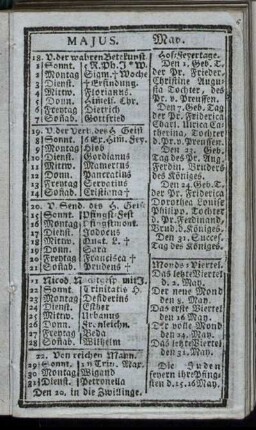 MAJUS.
18. V. der wahren Betekunst
1 Sonnt.
2 Montag Sigm. † Woche
3 Dienst. † Erfindung.
4 Mitw. Florianus.
5 Donn. Himelf. Chr.
6 Freytag Dietrich
7 Soñab. Gottfried
19. V. der Vert. des H Geist
8 Sonnt.
9 Montag Hiob
10 Dienst. Gordianus
11 Mitw. Mamertus
12 Donn. Pancratius
13 Freytag Servatius
14 Soñab. Christina †
20. V. Send. des H. Geist
15 Sonnt. Pfingst-Fest
16 Montag Pfingstmont.
17 Dienst. Jodocus
18 Mitw. Quat. L. †
19 Donn.
20 Freytag Francisca †
21 Soñab. Prudens †
21 Nicod.
22 Sonnt. Trinitatis H.
23 Montag Desiderius
24 Dienst. Esther
25 Mitw. Urbanus
26 Donn. Fronleichn.
27 Freytag Beda
28 Soñab. Wilhelm
22. Von reichen Mann.
29 Sonnt. 1 n Trin. Mar.
30 Montag Wigand
31 Dienst. Petronella
Den 20. in die Zwillinge.
May.
Hof-Feyertage.
Den 1. Geb. T.
der Pr. Frieder.
Christine Augu-
sta Tochter, des
Pr. v. Preussen.
Den 7. Geb. T.
der Pr. Friderica
Charl. Ulrica Ca-
therina, Tochter
d. Pr. v. Preussen.
Den 23. Geb.
Tag des Pr. Aug.
Ferdin. Bruders
des Königes.
Den 24. Geb. T.
der Pr. Friderica
Dorothea Louise
Philipp. Tochter
d. Pr. Ferdinand,
Brud. d. Königes.
Den 31. Succes.
Tag des Königes.
Monds-Viertel.
Das letzte Viertel
d. 2. May.
Der neue Mond
den 8. May.
Das erste Viertel
den 16. May.
Der volle Mond
den 24. May.
Das letzte Viertel
den 31. May.
Die Juden
feyern ihr Pfing-
sten d. 15. 16 May.